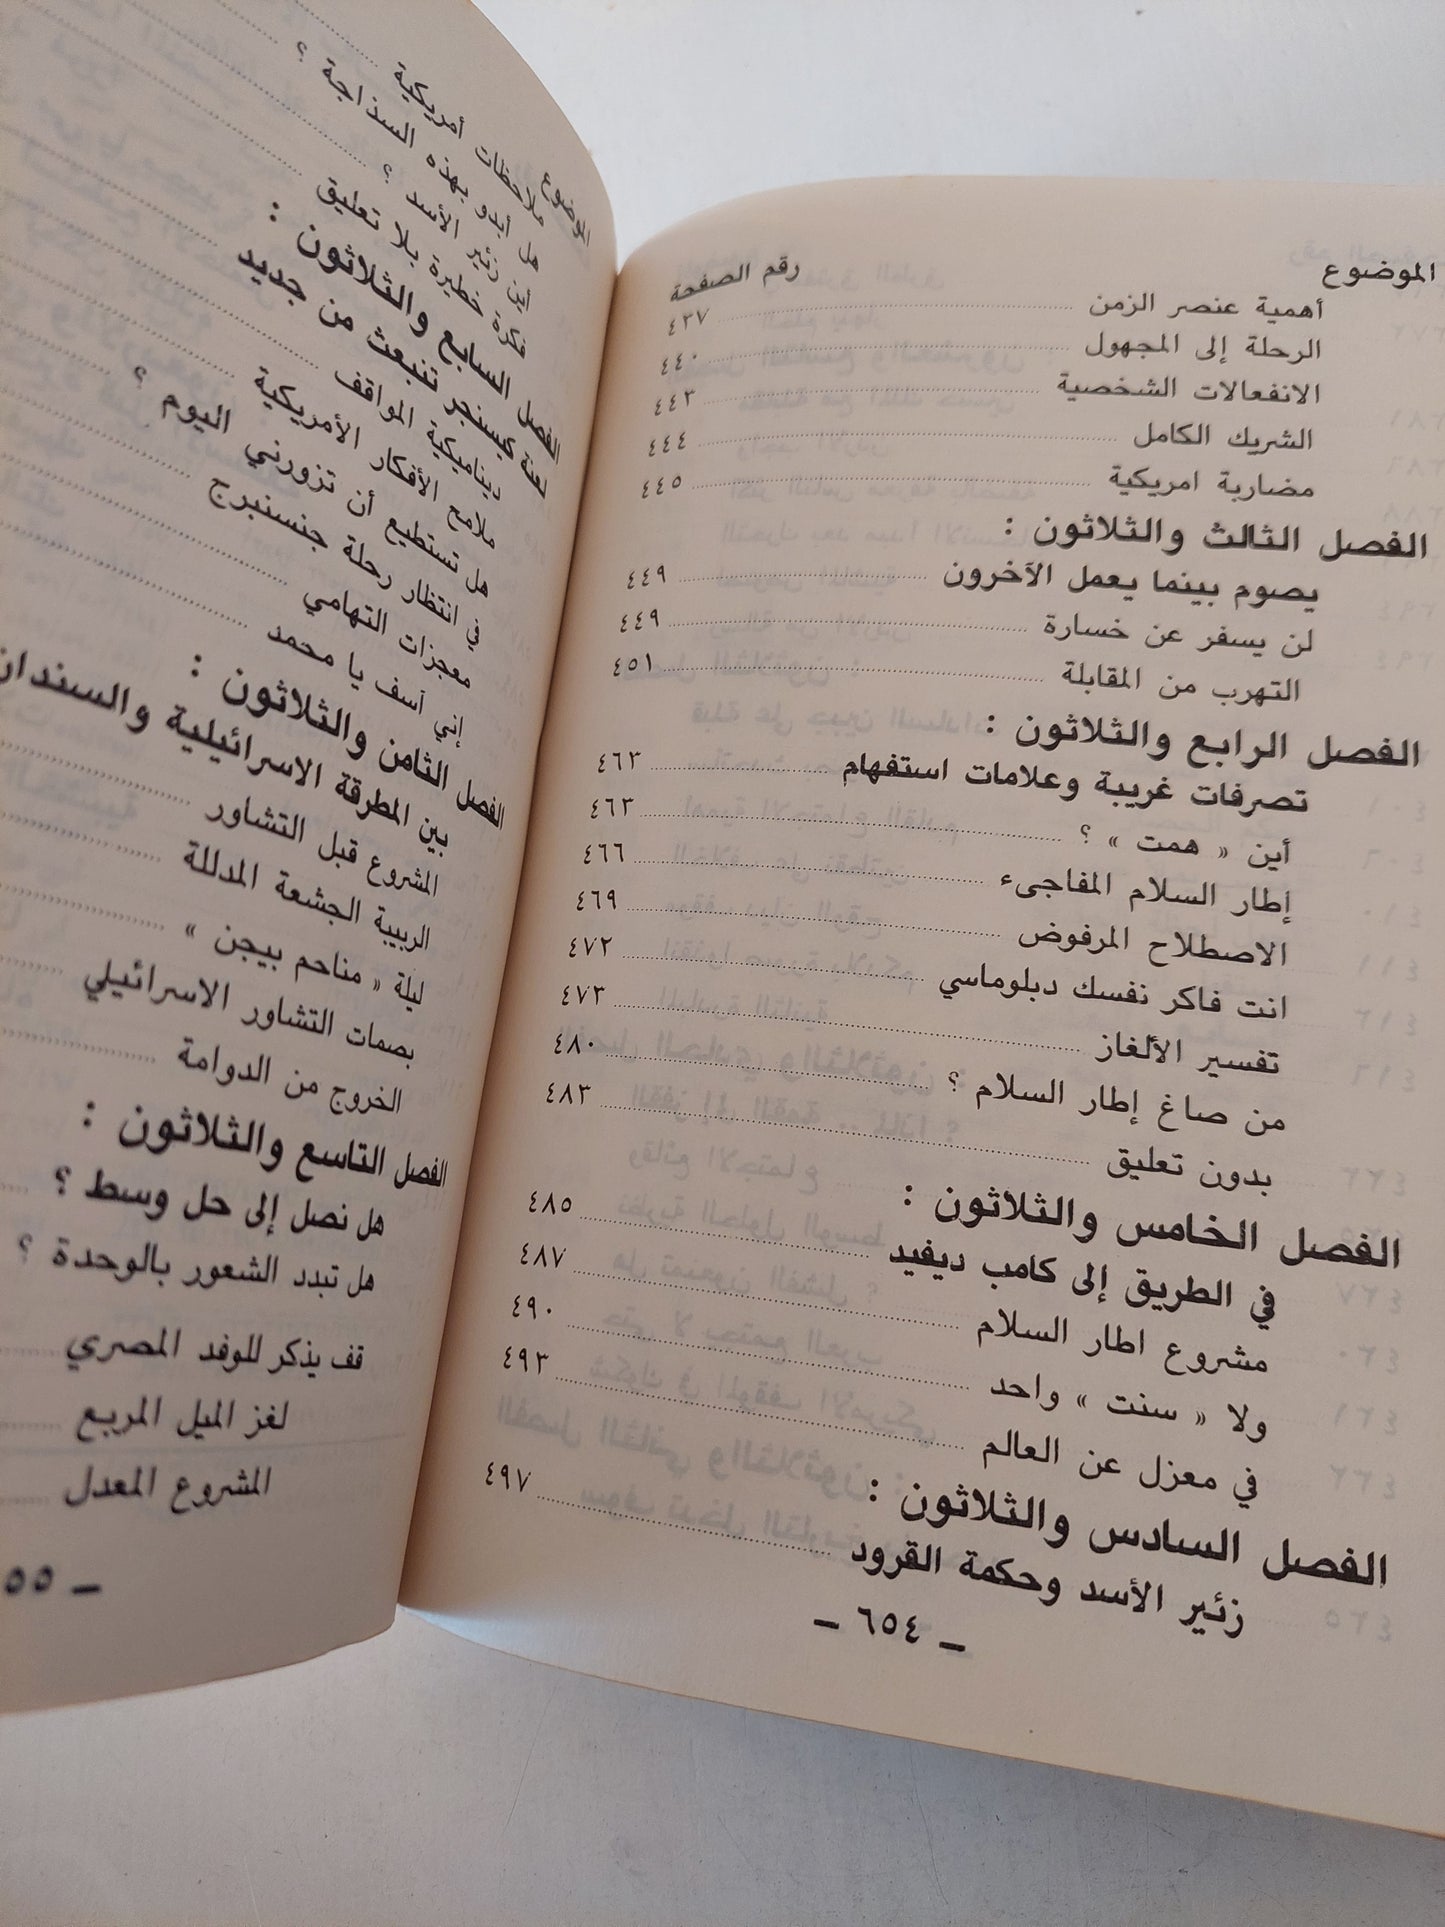 الموضوع رقم الصفحة
أهمية عنصر الزمن ٤٣٧
الرحلة إلى المجهول ٤٤٠
الانفعالات الشخصية ٤٤٣
الشريك الكامل ٤٤٤
مضاربة امريكية ٤٤٥
الفصل الثالث والثلاثون :
يصوم بينما يعمل الآخرون ٤٤٩
لن يسفر عن خسارة ٤٤٩
التهرب من المقابلة ٤٥١
الفصل الرابع والثلاثون :
تصرفات غريبة وعلامات استفهام ٤٦٣
أين « همت » ؟ ٤٦٣
إطار السلام المفاجىء ٤٦٦
الاصطلاح المرفوض ٤٦٩
انت فاكر نفسك دبلوماسي ٤٧٢
تفسير الألغاز ٤٧٣
من صاغ إطار السلام ؟ ٤٨٠
بدون تعليق ٤٨٣
الفصل الخامس والثلاثون :
في الطريق إلى كامب ديفيد ٤٨٥
مشروع اطار السلام ٤٨٧
ولا « سنت » واحد ٤٩٠
في معزل عن العالم ٤٩٣
الفصل السادس والثلاثون :
زئير الأسد وحكمة القرود ٤٩٧
– ٦٥٤ –
الموضوع
ملاحظات أمريكية
هل أبدو بهذه السذاجة ؟
أين زئير الأسد ؟
فكرة خطيرة بلا تعليق
الفصل السابع والثلاثون :
لعنة كيسنجر تنبعث من جديد
ديناميكية المواقف
ملامح الأفكار الأمريكية
هل تستطيع أن تزورني اليوم ؟
في انتظار رحلة جنسنبرج
معجزات التهامي
إني أسف يا محمد
الفصل الثامن والثلاثون :
بين المطرقة الاسرائيلية والسندان
المشروع قبل التشاور
الربيبة الجشعة المدللة
ليلة « مناحم بيجن »
بصمات التشاور الاسرائيلي
الخروج من الدوامة
الفصل التاسع والثلاثون :
هل نصل إلى حل وسط ؟
هل تبدد الشعور بالوحدة ؟
قف يذكر للوفد المصري
لغز الميل المربع
المشروع المعدل
٥٥ –